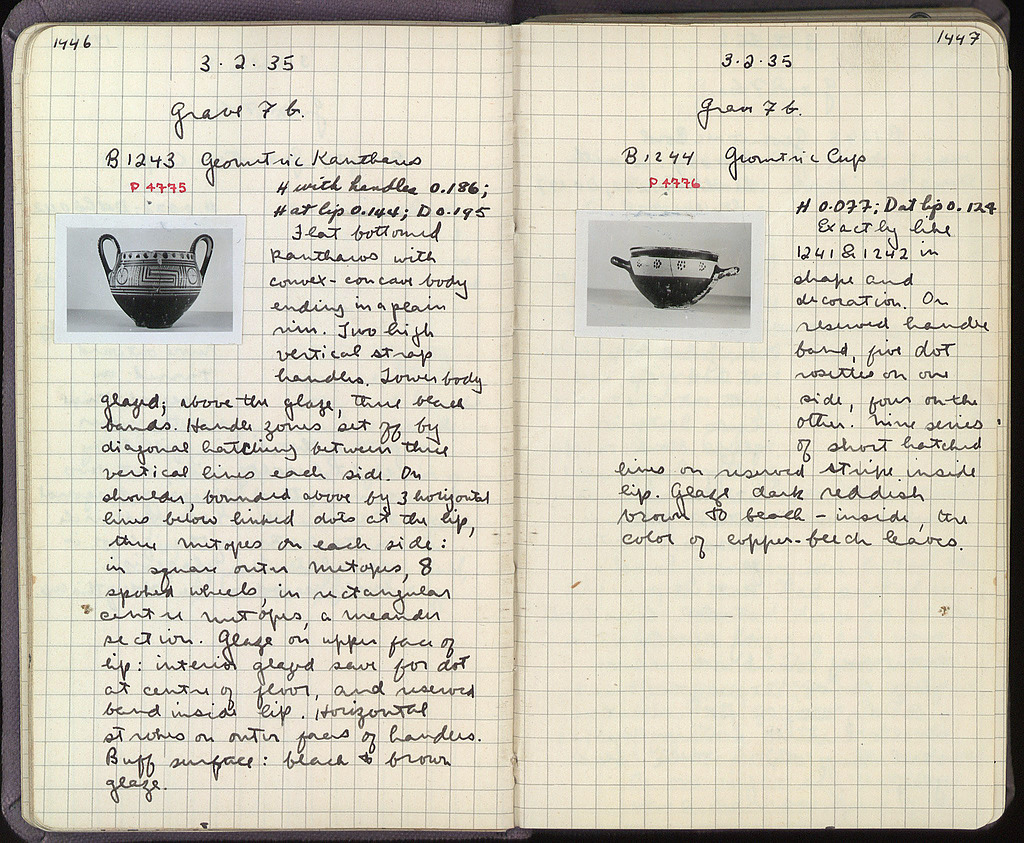 1446
3·2·35
Grave 7 b.
B 1243 Geometric Kantharos
P 4775
H with handles 0.186;
H at lip 0.144; D 0.195
Flat bottomed
kantharos with
convex-concave body
ending in a plain
rim. Two high
vertical strap
handles. Lower body
glazed; above the glaze, three black
bands. Handle zones set off by
diagonal hatching between three
vertical lines each side. On
shoulder, bounded above by 3 horizontal
lines below linked dots at the lip,
three metopes on each side:
in square outer metopes, 8
spoked wheels, in rectangular
centre metopes, a meander
section. Glaze on upper face of
lip: interior glazed save for dot
at centre of floor, and reserved
band inside lip. Horizontal
strokes on outer faces of handles.
Buff surface: black to brown
glaze.
1447
3·2·35
Grave 7 b.
B 1244 Geometric Cup
P 4776
H 0.077; D at lip 0.124
Exactly like
1241 & 1242 in
shape and
decoration. On
reserved handle
band, five dot
rosettes on one
side, four on the
other. Nine series
of short hatched
lines on reserved stripe inside
lip. Glaze dark reddish
brown to black - inside, the
color of copper-beech leaves.